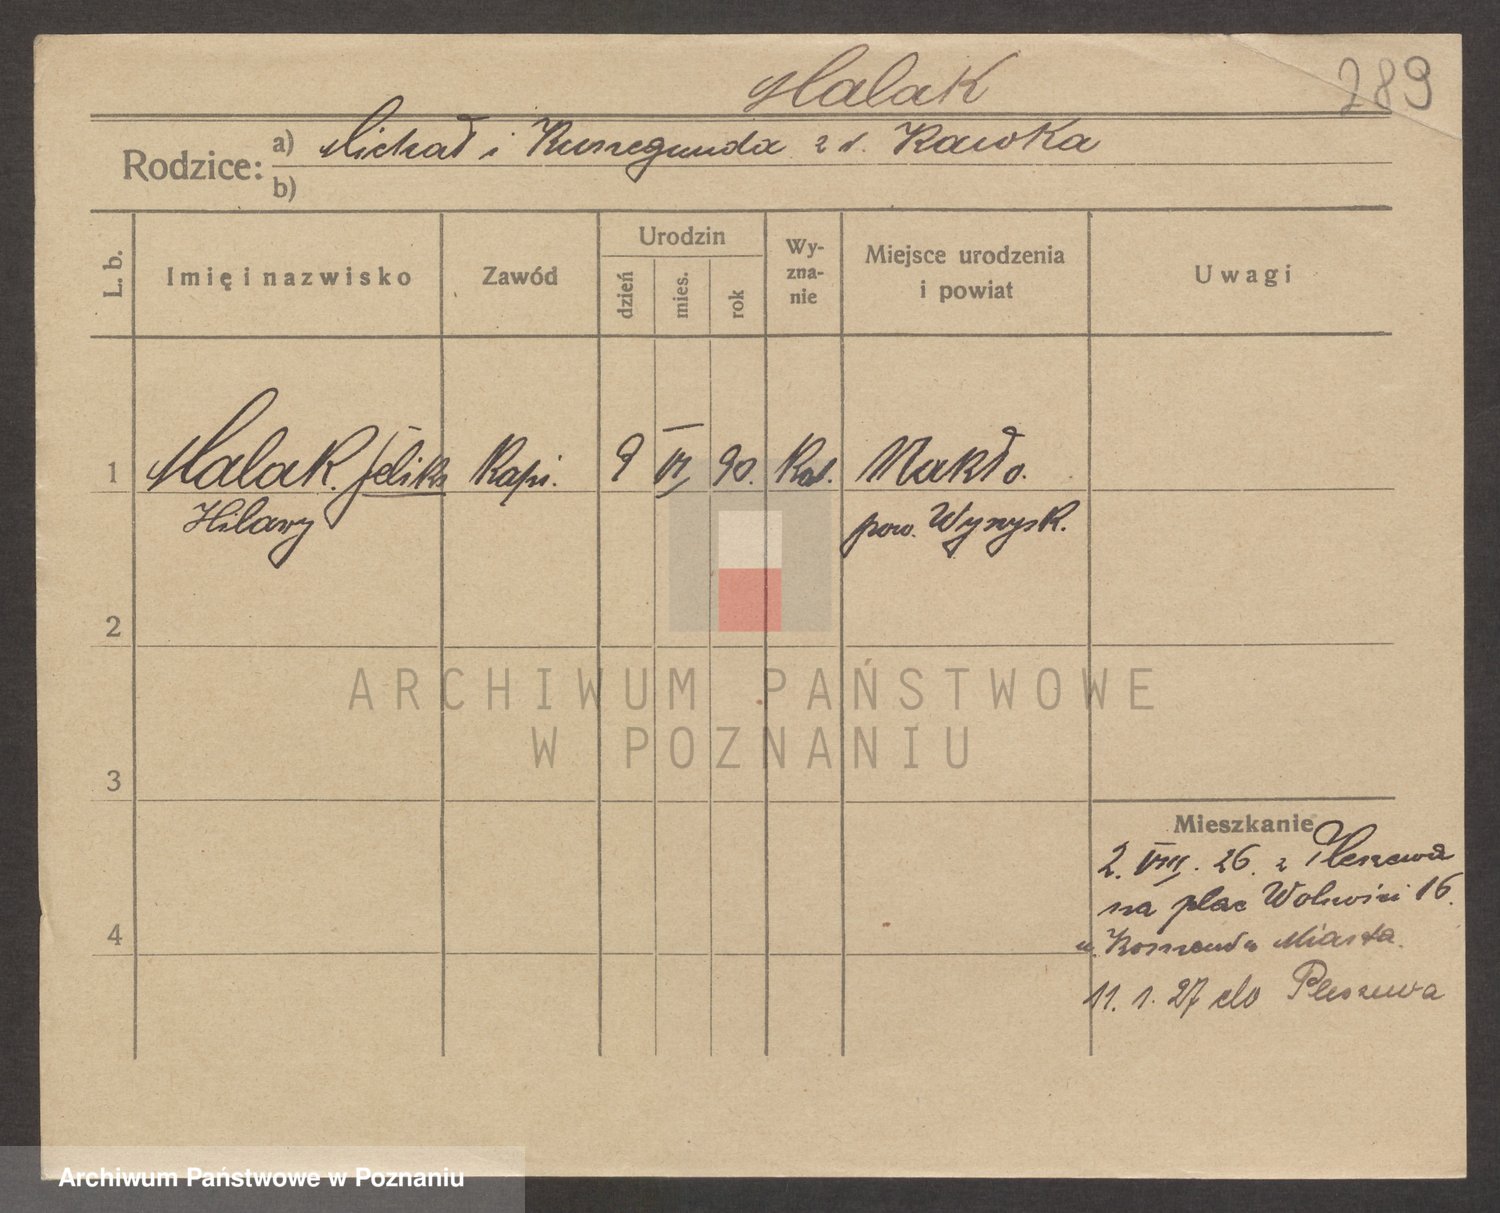 Malak
289
Rodzice: a) Michał i Kunegunda z d. Kawka
b)
L. b. Imię i nazwisko Zawód Urodzin dzień mies. rok Wy-zna-nie Miejsce urodzenia i powiat Uwagi
1 Malak. Feliks Kapi. 9 VI 90. Kat. Nakło.
Hilary pow. Wyrzysk.
2
ARCHIWUM PAŃSTWOWE
W POZNANIU
3
Mieszkanie
2. VIII. 26. z Pleszewa
na plac Wolności 16.
4
u. Komenda Miasta.
11. 1. 27 do Pleszewa
Archiwum Państwowe w Poznaniu